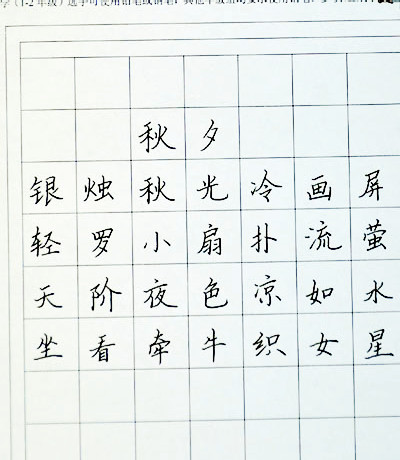 秋夕
银烛秋光冷画屏
轻罗小扇扑流萤
天阶夜色凉如水
坐看牵牛织女星